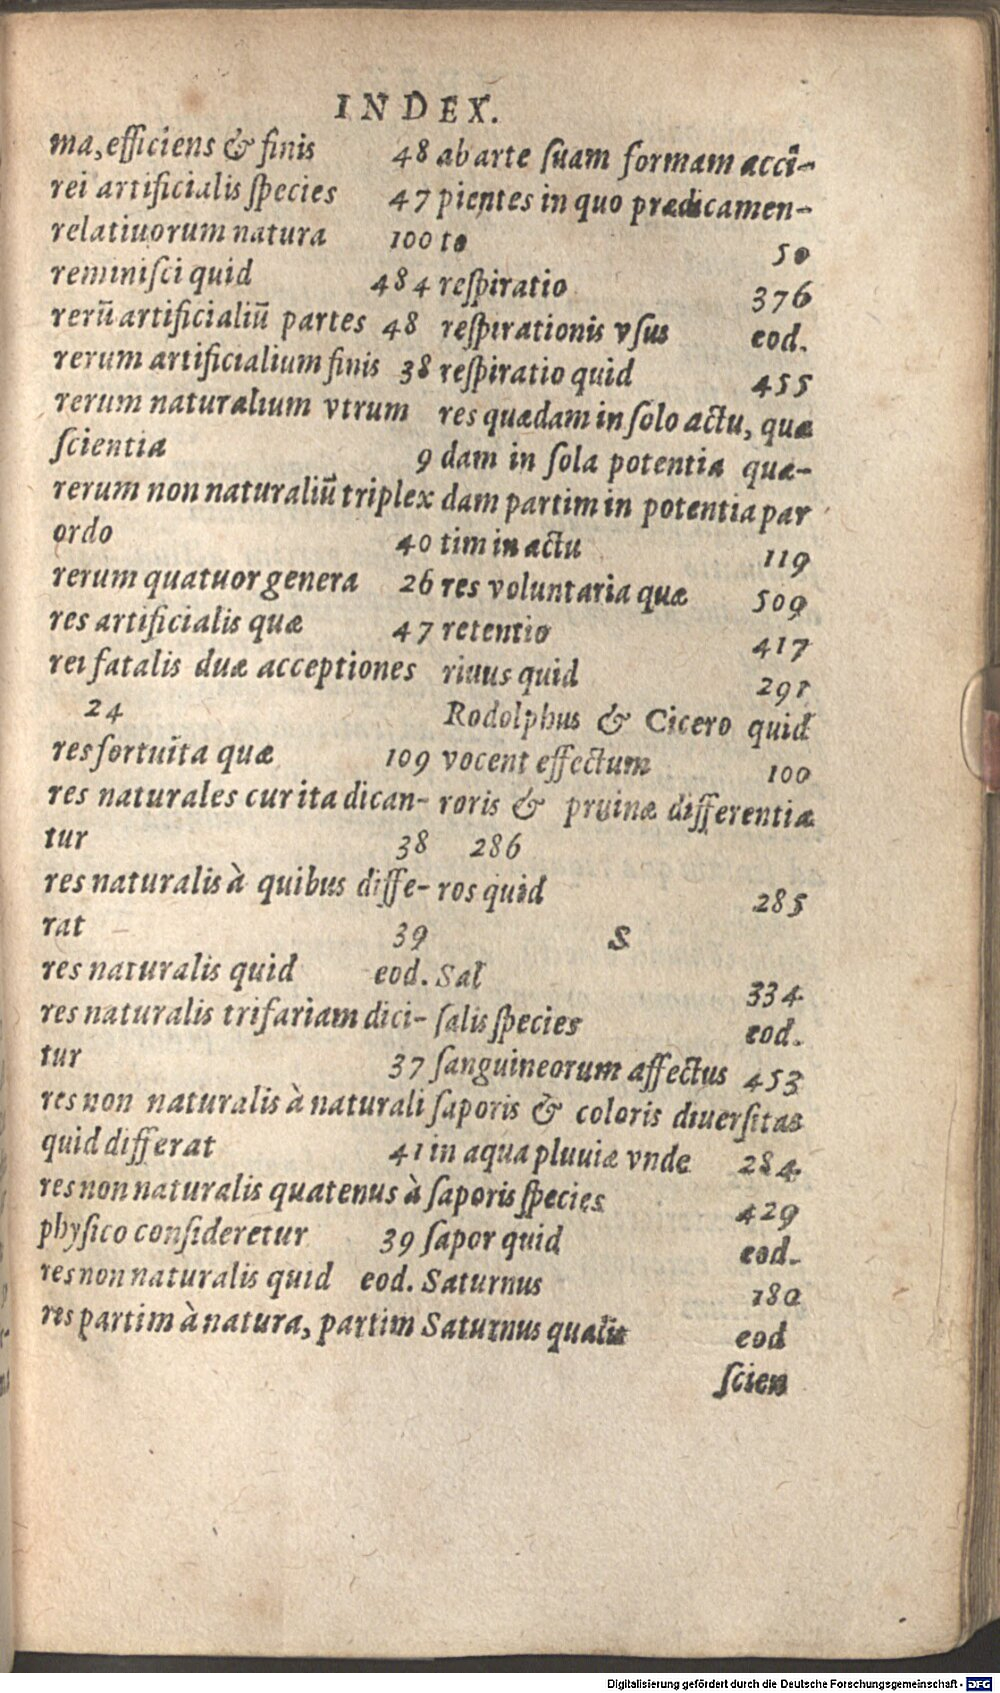 INDEX.
ma, efficiens & finis 48
rei artificialis ſpecies 47
relatiuorum natura 100
reminiſci quid 484
rerū artificialiū partes 48
rerum artificialium finis 38
rerum naturalium vtrum
ſcientia 9
rerum non naturaliū triplex
ordo 40
rerum quatuor genera 26
res artificialis quæ 47
rei fatalis duæ acceptiones
24
res fortuita quæ 109
res naturales cur ita dican-
tur 38
res naturalis à quibus diffe-
rat 39
res naturalis quid eod.
res naturalis trifariam dici-
tur 37
res non naturalis à naturali
quid differat 41
res non naturalis quatenus à
phyſico conſideretur 39
res non naturalis quid eod.
res partim à natura, partim
ab arte ſuam formam acci-
pientes in quo prædicamen-
to 50
reſpiratio 376
reſpirationis vſus eod.
reſpiratio quid 455
res quædam in ſolo actu, quæ
dam in ſola potentia quæ-
dam partim in potentia par
tim in actu 119
res voluntaria quæ 509
retentio 417
riuus quid 291
Rodolphus & Cicero quid
vocent effectum 100
roris & pruinæ differentiæ
286
ros quid 285
S
Sal 334
ſalis ſpecies eod.
ſanguineorum affectus 453
ſaporis & coloris diuerſitas
in aqua pluuiæ vnde 284
ſaporis ſpecies 429
ſapor quid eod.
Saturnus 180
Saturnus qualis eod
ſcien
Digitalisierung gefördert durch die Deutsche Forschungsgemeinschaft - DFG